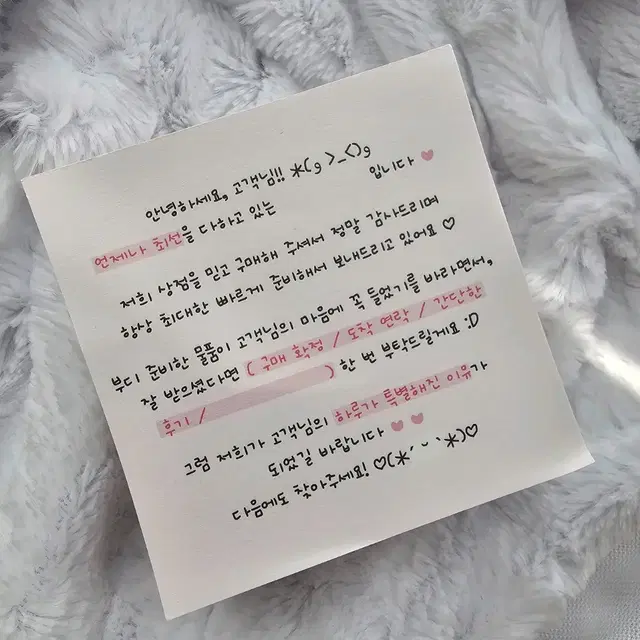 안녕하세요, 고객님!! *(9 >_<)9
언제나 최선을 다하고 있는 입니다 ♥
저희 상점을 믿고 구매해 주셔서 정말 감사드리며
항상 최대한 빠르게 준비해서 보내드리고 있어요 ♡
부디 준비한 물품이 고객님의 마음에 꼭 들었기를 바라면서,
잘 받으셨다면 ( 구매 확정 / 도착 연락 / 간단한
후기 / ) 한 번 부탁드릴게요 :D
그럼 저희가 고객님의 하루가 특별해진 이유가
되었길 바랍니다 ♥♥
다음에도 찾아주세요! ♡(*´ᵕ`*(♡